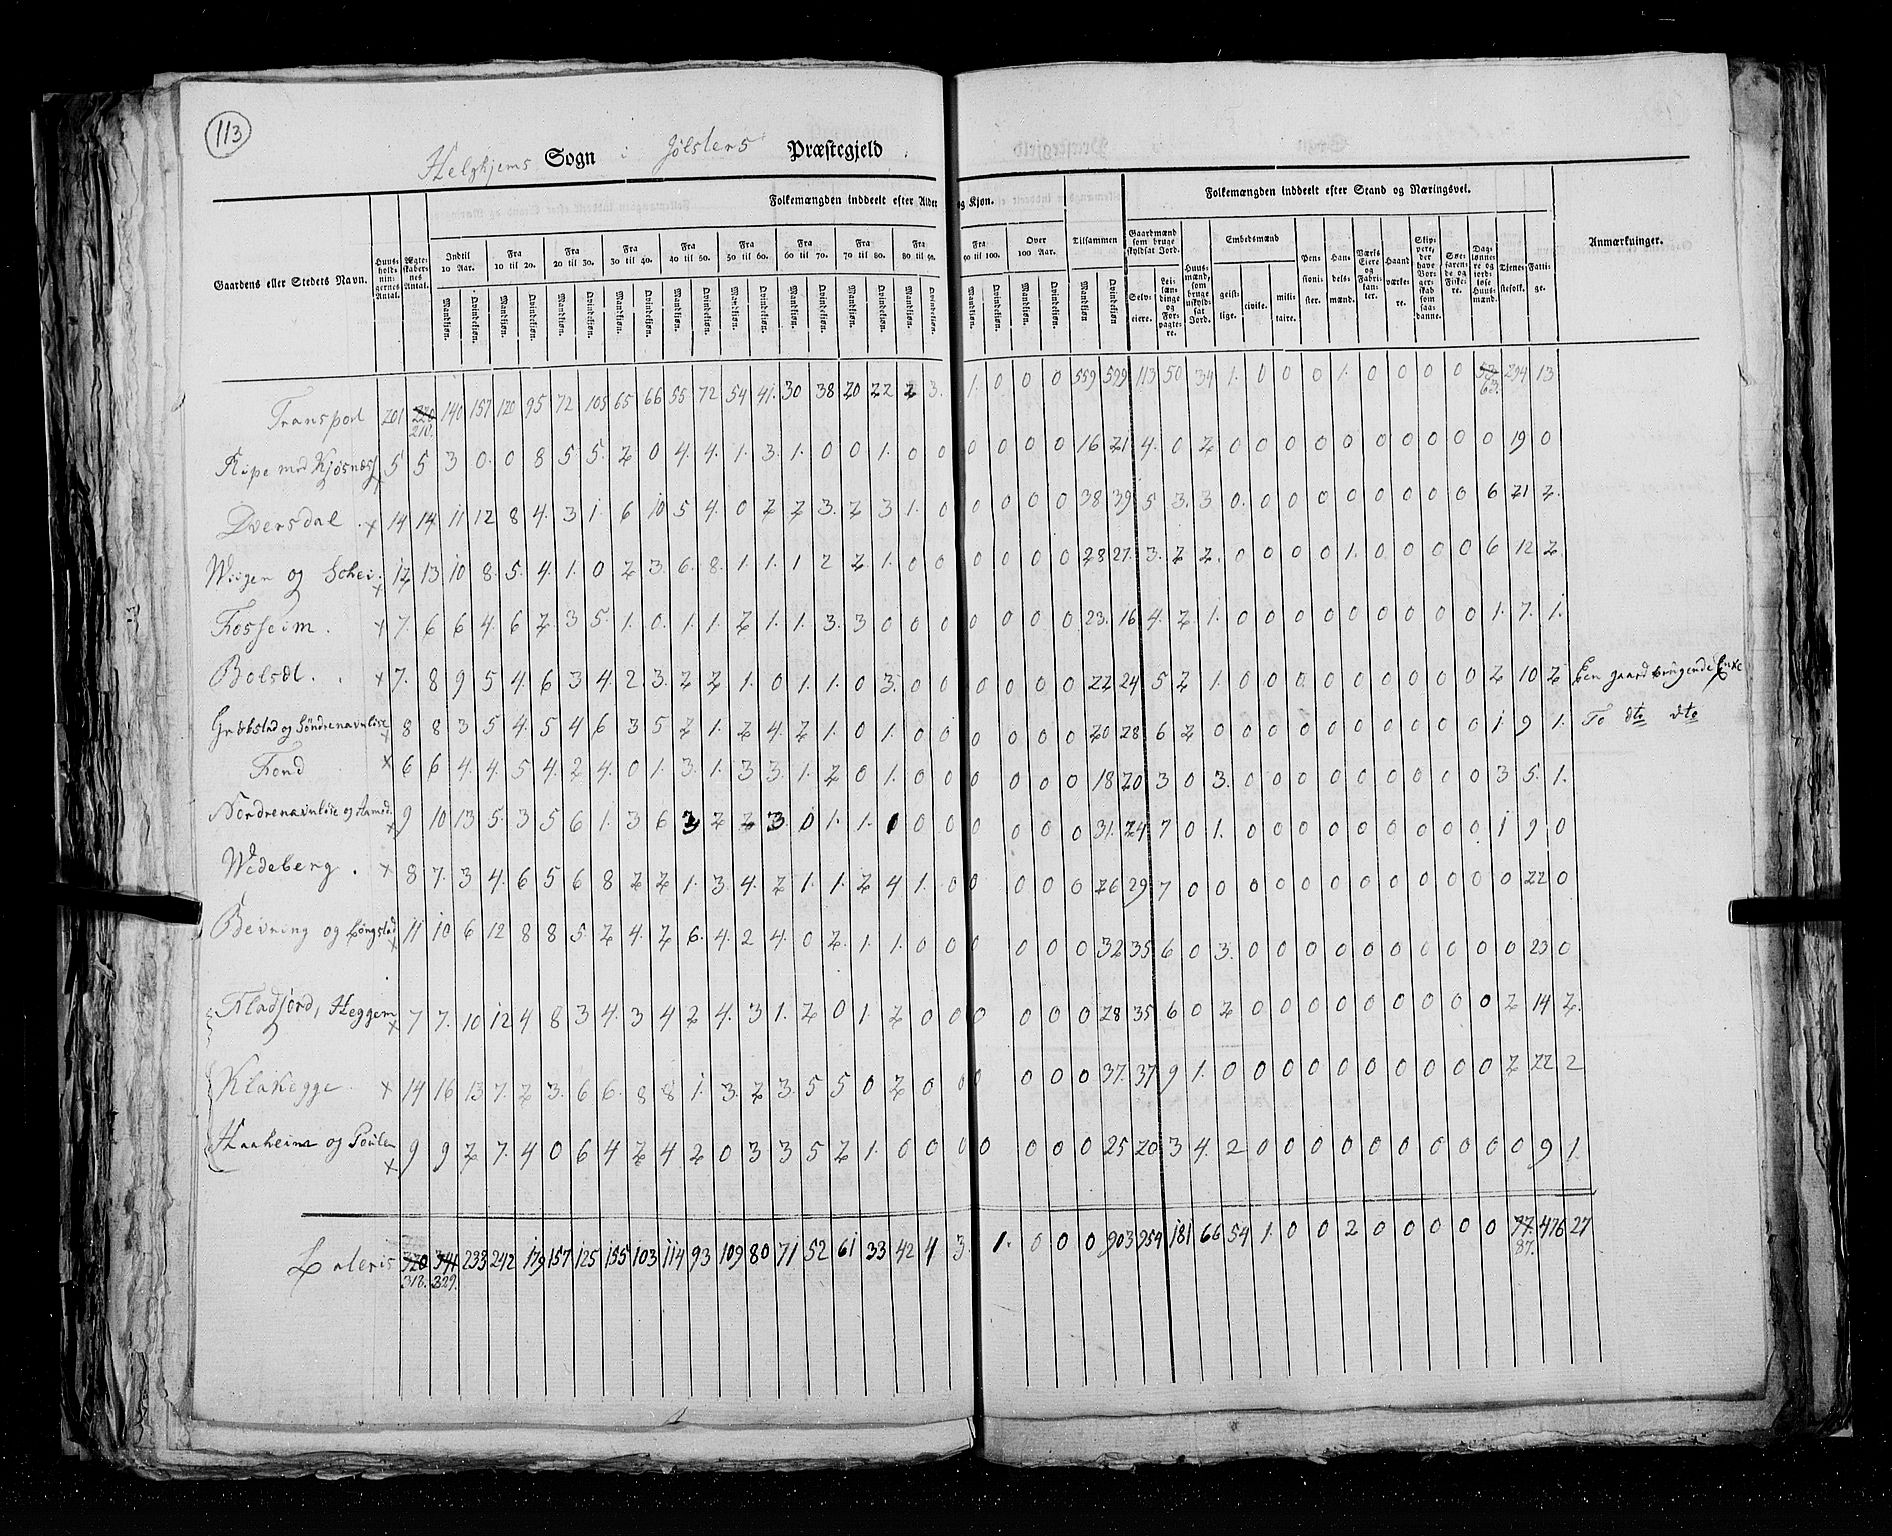 113
Helghjems Sogn i Jölsters Præstegjeld.
Folkemængden inddeelt efter Alder og Kjøn. Folkemængden inddeelt efter Stand og Næringsvei.
Gaardens eller Stedets Navn. Huusholdningernes Antal. Ægteskabernes Antal. Indtil 10 Aar. Fra 10 til 20. Fra 20 til 30. Fra 30 til 40. Fra 40 til 50. Fra 50 til 60. Fra 60 til 70. Fra 70 til 80. Fra 80 til 90. Fra 90 til 100. Over 100 Aar. Tilsammen Gaardmænd som bruge skyldsat Jord. Huusmænd, som bruge uskyldsat Jord. Embedsmænd Pensionister. Handelsmænd. Værks Eiere og Fabrikanter. Haandværkere. Skippere, der have Borgerskab som saadanne. Søefarende og Fiskere. Dagløntere og jordløse Huusmænd. Tjenestefolk. Fattige. Anmærkninger.
Mandkjøn. Qvindekjøn. Mandkjøn. Qvindekjøn. Mandkjøn. Qvindekjøn. Mandkjøn. Qvindekjøn. Mandkjøn. Qvindekjøn. Mandkjøn. Qvindekjøn. Mandkjøn. Qvindekjøn. Mandkjøn. Qvindekjøn. Mandkjøn. Qvindekjøn. Mandkjøn. Qvindekjøn. Mandkjøn. Qvindekjøn. Mandkjøn Qvindekjøn Selveiere. Leilændinge og Forpagtere. geistlige. civile. militaire.
Transport 201 220 140 157 120 95 72 105 65 66 55 72 54 41. 30 38 20 22 2 3. 1. 0 0 0 559 599 113 50 34 1. 0 0 0 1. 0 0 0 0 53 294 13
210. 63.
Ripe med Kjøsnæss x 5 5 3 0. 0 8 5 5. 2 0 4. 4. 1. 3. 1. 0 0 1. 0 0 0 0 0 0 16 21 4. 0 2 0 0 0 0 0 0 0 0 0 0 19 0
Dversdal x 14 14 11 12 8 4. 3 1. 6 10 5 4. 0 2 2 3. 2 3 1. 0 0 0 0 0 38 39 5 3. 3 0. 0 0 0 0 0 0 0 0 6 21 2.
Wiigen og Schei. x 12 13 10 8. 5. 4. 1. 0 2 3. 6. 8. 1. 1. 1 2 2. 1. 0 0 0 0 0 0 28 27. 3. 2 2. 0 0 0 0 1. 0 0 0 0 6 12 2
Fosseim. x 7. 6 6 4. 6 2. 3 5. 1. 0. 1. 1. 2 1. 1. 3. 3 0 0 0 0 0 0 0 23. 16 4. 2. 1. 0 0 0 0 0 0 0 0 0 1. 7. 1.
Bolsæt. x 7. 8 9 5 4. 6 3 4. 2 3. 2 2 1. 0 1. 1. 0 3. 0 0 0 0 0 0 22 24 5 2 1. 0 0 0 0 0 0 0 0 0 2 10 2 Een gaard brugende Enke
Grebstad og Søndrenavnløse x 8 8 3 5 4. 5 4 6 3 5 2 1. 2 4. 2 1. 0 1. 0 0 0 0 0 0 20 28 6 2 0 0 0 0 0 0 0 0 0 0 1 9 1. To dto dto
Fond x 6 6 4. 4. 5 4. 2 4. 0 1. 3. 1. 3 3. 1. 2 0 1. 0 0 0 0 0 0 18 20 3 0 3. 0 0 0 0 0 0 0 0 0 3 5. 1.
Nordrenavnløse og Aamod. x 9 10 13 5. 3 5 6 1. 3 6 3 2 2 3 0 1. 1. 0 0 0 0 0 0 0 31. 24 7 0 1. 0 0 0 0 0 0 0 0 0 1 9 0
Wedeberg. x 8 7. 3 4. 6 5 6 8 2 2 1. 3. 4. 2 1. 1. 2 4 1. 0 0 0 0 0 26 29 7 0 0 0 0 0 0 0 0 0 0 0 0 22 0
Bevning og Longstad x 11 10 6 12 8 8 5. 2 4. 2 6. 4. 2 4. 0 2. 1. 1. 0 0 0 0 0 32 35 6 0 3. 0 0 0 0 0 0 0 0 0 0 23 0
Fladfjord, Heggem x 7 7. 10 12 4 8 3 4. 3 4 2 4. 3 1. 2 0 1. 2 0 0 0 0 0 0 28 35 6 0 2 0 0 0 0 0 0 0 0 0 2 14 2.
Klakegge. x 14 16 13 7. 2 3. 6 6. 8 8 1. 3. 2 3. 5 5 0 2 0 0 0 0 0 0 37. 37 9 1. 0 0 0 0 0 0 0 0 0 0 2 22 2
Haaheim og x 9 9 2 7. 4 0 6 4 2 4 2 0 3 3 5 2 1. 0 0 0 0 0 0 0 25 20 3 4. 2 0 0 0 0 0 0 0 0 0 0 9 1.
Lateris 320 341 233 242 179 157 125 155 103 114 93 109 80 71 52 61 33 42 4 3. 1. 0 0 0 903 954 181 66 54 1. 0 0 2 0 0 0 0 0 77. 476 27
318. 329. 87.